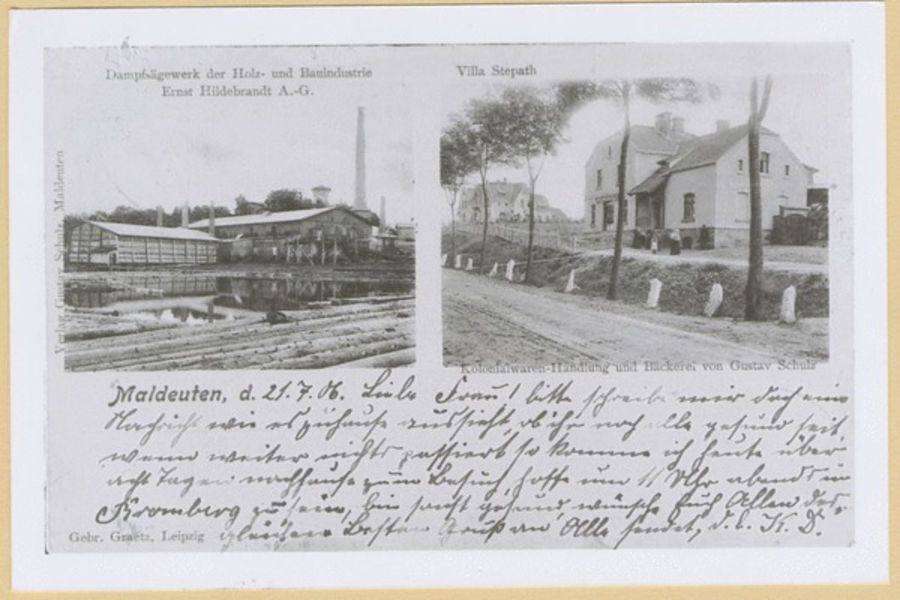 Dampfsägewerk der Holz- und Bauindustrie
Ernst Hildebrandt A.-G.
Villa Stepath
Verlag Gustav Schulz, Maldeuten
Kolonialwaren-Handlung und Bäckerei von Gustav Schulz
Maldeuten, d. 21.7.06. Liebe Frau! bitte schreibe mir doch eine
Nachricht wie es zuhause aussieht, ob ihr noch alle gesund seit,
wenn weiter nichts passiert so komme ich heute über
acht Tagen nachhause zum Besuch, hoffe um 11 Uhr abends in
Bromberg zu sein, bin sonst gesund wünsche Euch Allen des-
gleichen Besten Gruß an Alle sendet, d. l. K. D.
Gebr. Graetz, Leipzig